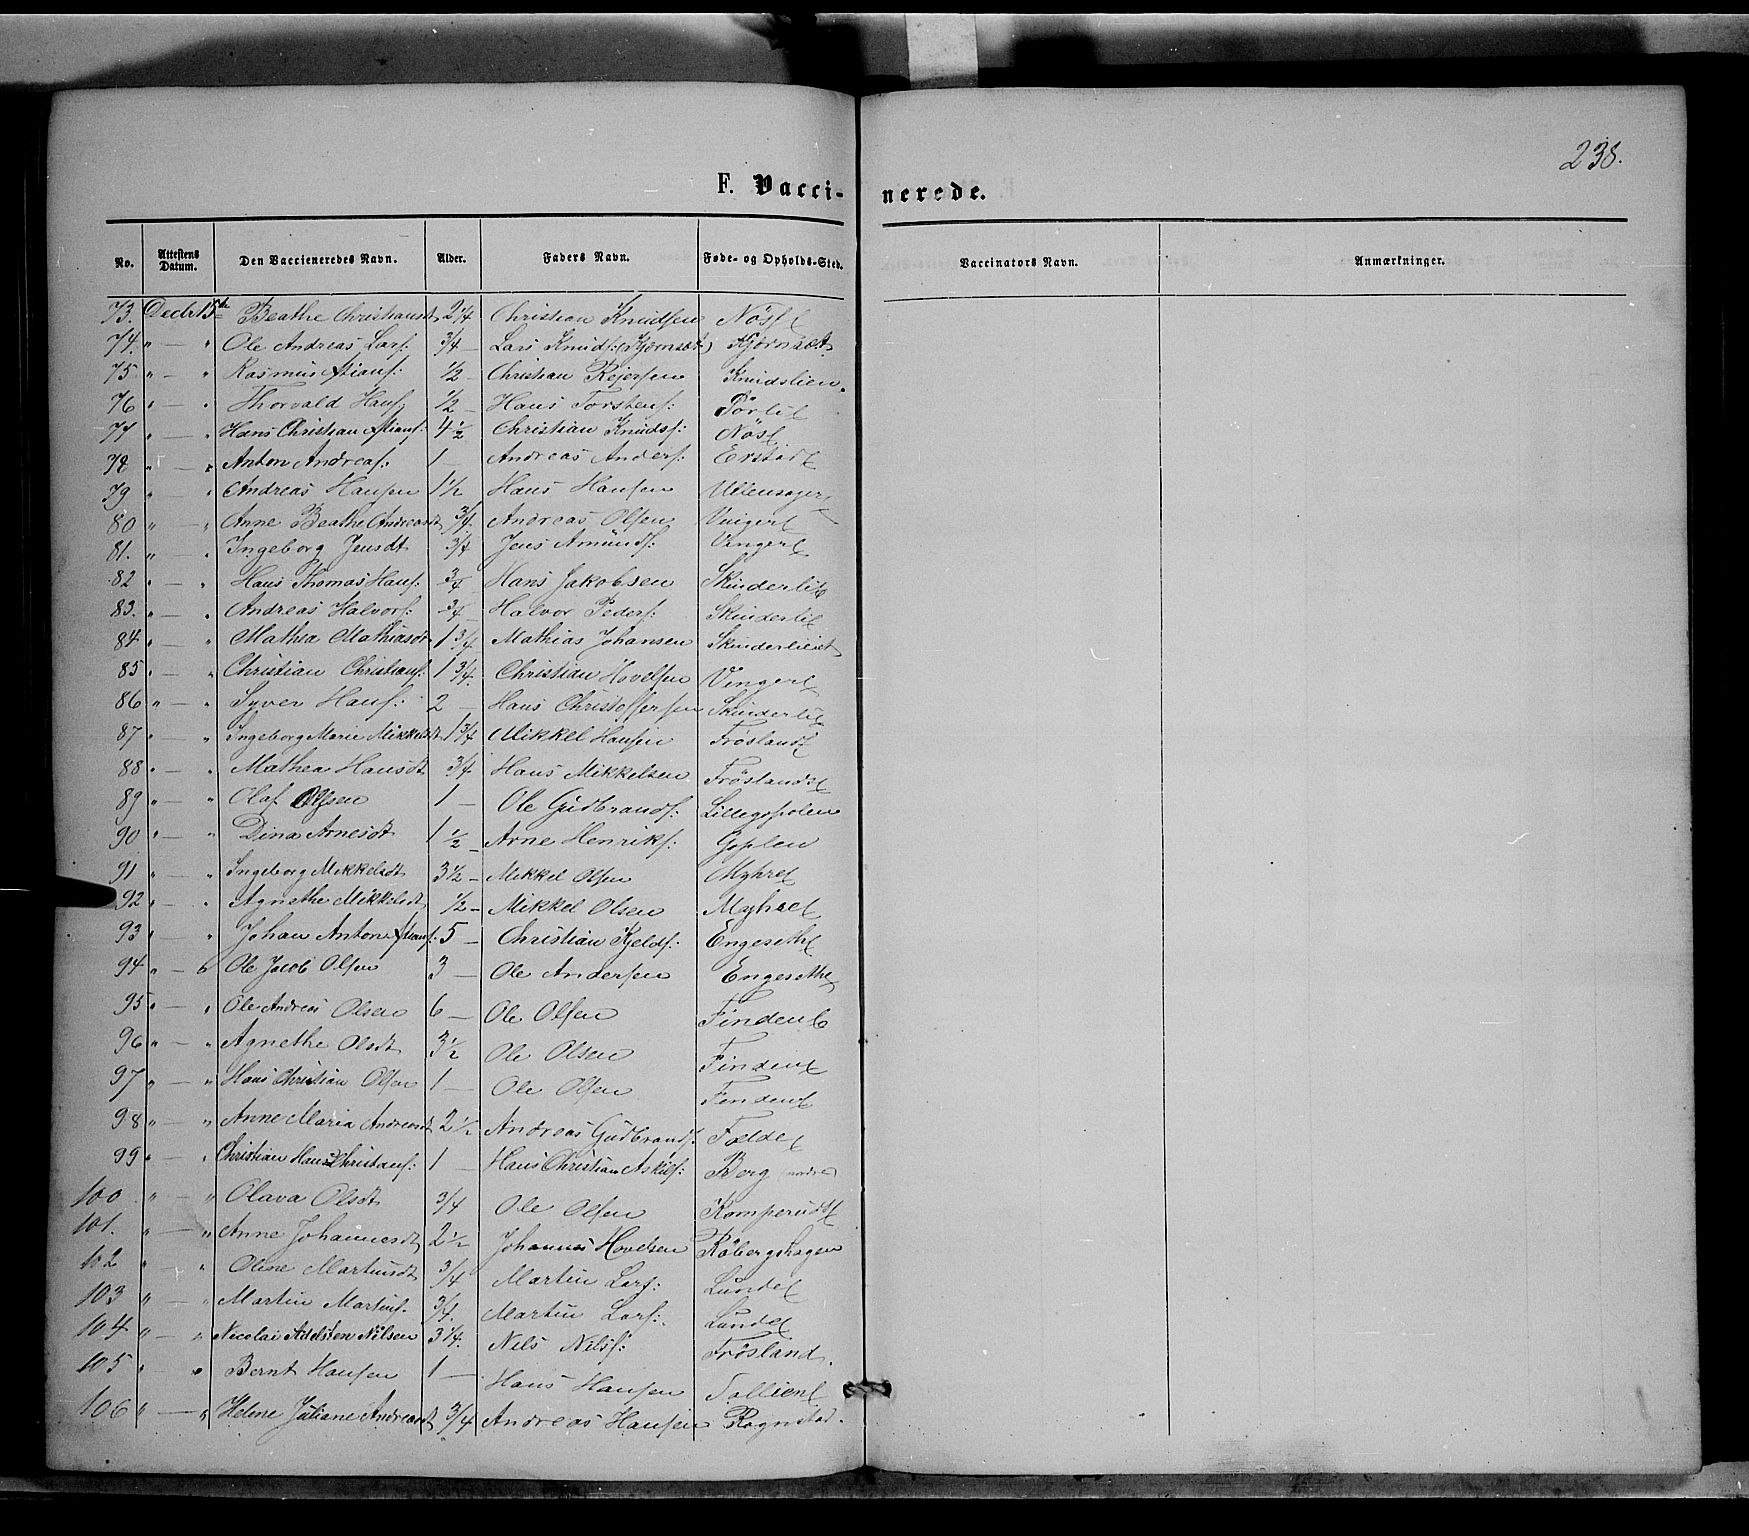 238.
F. Vacci- nerede.
No. Attestens Datum. Den Vaccieneredes Navn. Alder. Faders Navn. Føde- og Opholds-Sted. Vaccinators Navn. Anmærkninger.
73. Decbr 15de Beathe Christiansdt 2 1/4 Christian Knudsen Nös
74. " — " Ole Andreas Lars: 3/4 — Lars Knuds: (Kjörnsæt) Kjørnsæt
75 " — " Rasmus Xtians: 1/2 — Christian Rejersen Knudslien
76 " — " Thorvald Hans 1/2 — Hans Torstens: Pörli
77 " — " Hans Christian Xtians: 4 1/2 Christian Knuds: Nös
78 " — " Anton Andreas: 1 — Andreas Anders: Erstad
79 " — " Andreas Hansen 1 1/2 Hans Hansen Ullensager
80 " — " Anne Beathe Andreasdt 3/4. Andreas Olsen Vinger
81. " — " Ingeborg Jensdt 3/4 Jens Amünds: Vinger
82 " — " Hans Thomas Hans: 3/4 Hans Jakobsen Skinderli
83. " — " Andreas Halvors: 3/4 Halvor Peders: Skinderli
84. " — " Mathea Mathiasdt 1 3/4 Mathias Johansen Skinderlieiet
85 " — " Christian Christians: 1 3/4. Christian Hovelsen Vinger
86 " — " Syver Hans: 2 — Hans Christoffersen Skinderli
87 " — " Ingeborg Marie Mikkelsdt 1 3/4 Mikkel Hansen Frösland
88 " — " Mathea Hansdt 3/4 Hans Mikkelsen Fröslands
89 " — " Olaf Olsen 1 — Ole Gudbrands: Lillegoplen
90 " — " Dina Arnesdt 1 1/2 — Arne Henriks: Goplen
91 " — " Ingeborg Mikkelsdt 3 1/2 — Mikkel Olsen Myhre
92 " — " Agnethe Mikkelsdt 1/2 — Mikkel Olsen Myhre
93 " — " Johan Anton Xtians: 5 — Christian Kjelds: Engeseth
94 " — " Ole Jacob Olsen 3 — Ole Andersen Engeseth
95 " — " Ole Andreas Olsen 6 — Ole Olsen Finden
96 " — " Agnethe Olsdt 3 1/2 Ole Olsen Finden
97 " — " Hans Christian Olsen 1 — Ole Olsen Finden
98 " — " Anne Maria Andreasdt 2 1/2 Andreas Gudbrands: Fælde
99 " — " Christian Hans Christians: 1 — Hans Christian Askils: Berg
100 " — " Olava Olsdt 3/4 Ole Olsen Komperud
101. " — " Anne Johannesdt 2 1/2 Johannes Hovelsen Röbergshagen
102 " — " Oline Martinsdt 3/4 Martin Lars: Lunde
103 " — " Martin Martins. 3/4. Martin Lars: Lunde
104 " — " Nicolai Adelsten Nilsen 3 1/4. Nels Nils: Frösland.
105 " " Bernt Hansen 1 — Hans Hansen Tollien
106 " — " Helene Juliane Andreasdt 3/4 Andreas Hansen Rognstad.